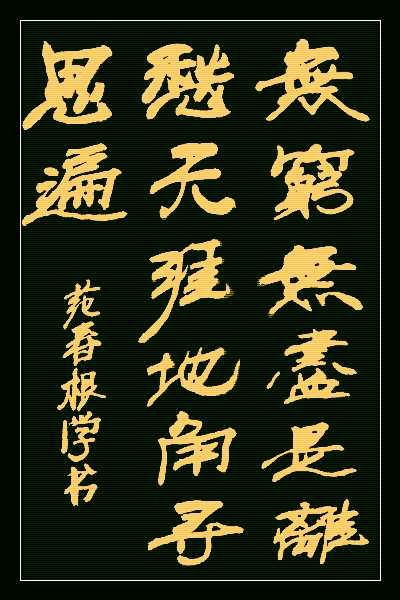 無窮無盡是離
愁天涯地角尋
思遍
范春根学书